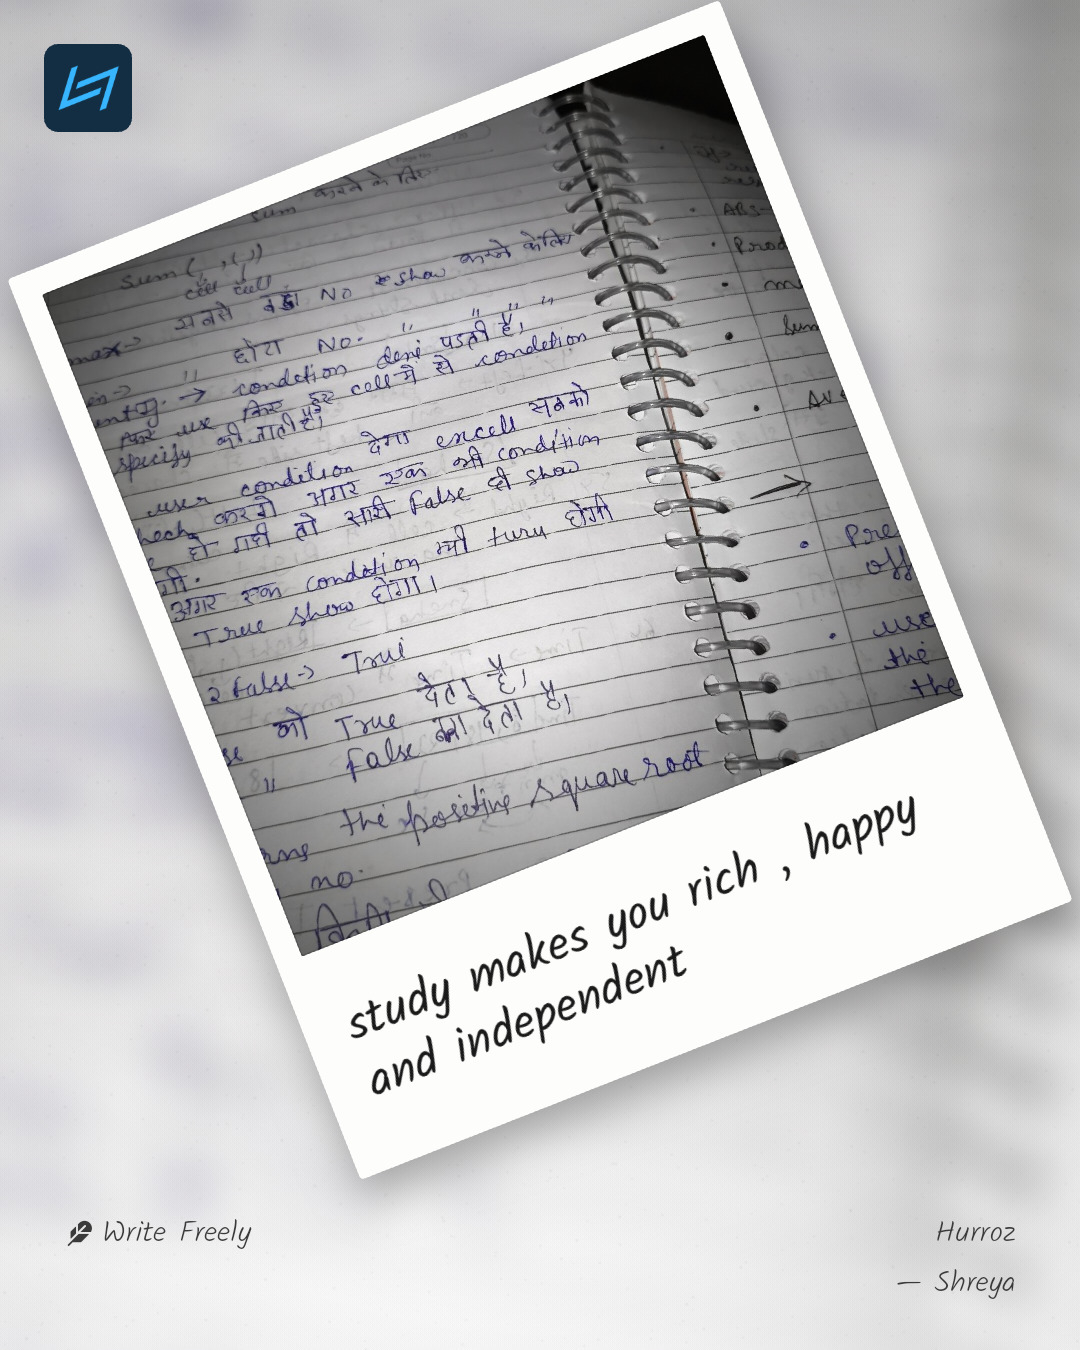 sum करने के लिए
sum( , ( ))
cell cell
max-> सबसे बड़ा No show करने के लिए
" छोटा No. " " " "
-> condition देनी पड़ती है,
फिर use किए हर cell में से condition
specify की जाती है।
user condition देगा excell सबको
check करेगी अगर एक भी condition
हो गयी तो सारी False ही show
गी.
अगर एक condition भी turu होगी
True show होगा।
2 False-> True
को True देता है,
" False को देता है,
the positive square root
no.
ABS-
Prod
m
Sum
Ave
Pre
off
use
the
the
study makes you rich , happy
and independent
Write Freely
Hurroz
— Shreya